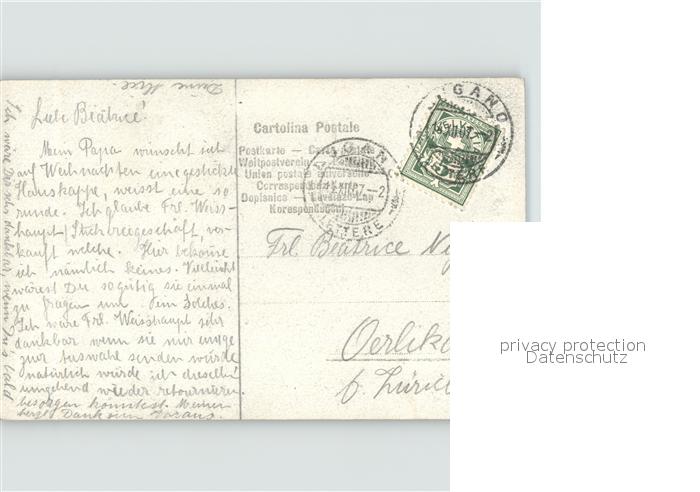 Liebe Beatrice!
Mein Papa wünscht sich
auf Weihnachten eine gestickte
Hauskappe, weisst eine so
runde. Ich glaube Frl. Weiss-
haupt, Stickereigeschäft, ver-
kauft welche. Hier bekomme
ich nämlich keines. Vielleicht
wärest Du so gütig sie einmal
zu fragen um ein solches.
Ich wäre Frl. Weisshaupt sehr
dankbar wenn sie mir einige
zur Auswahl senden würde
natürlich würde ich dieselben
umgehend wieder retournieren.
besorgen könntest. Meinen
Dank zum Voraus.
Ich wäre Dir dankbar, wenn Du's bald
Deine Alice.
Cartolina Postale
Postkarte — Carte postale
Weltpostverein
Union postale universelle
Correspondenz-Karte
Dopisnice — Levelező-Lap
Korespondencní
LUGANO
LETTERE
HELVETIA
5
LUGANO
LETTERE
Frl. Beatrice
Oerlik
b. Züric
privacy protection
Datenschutz